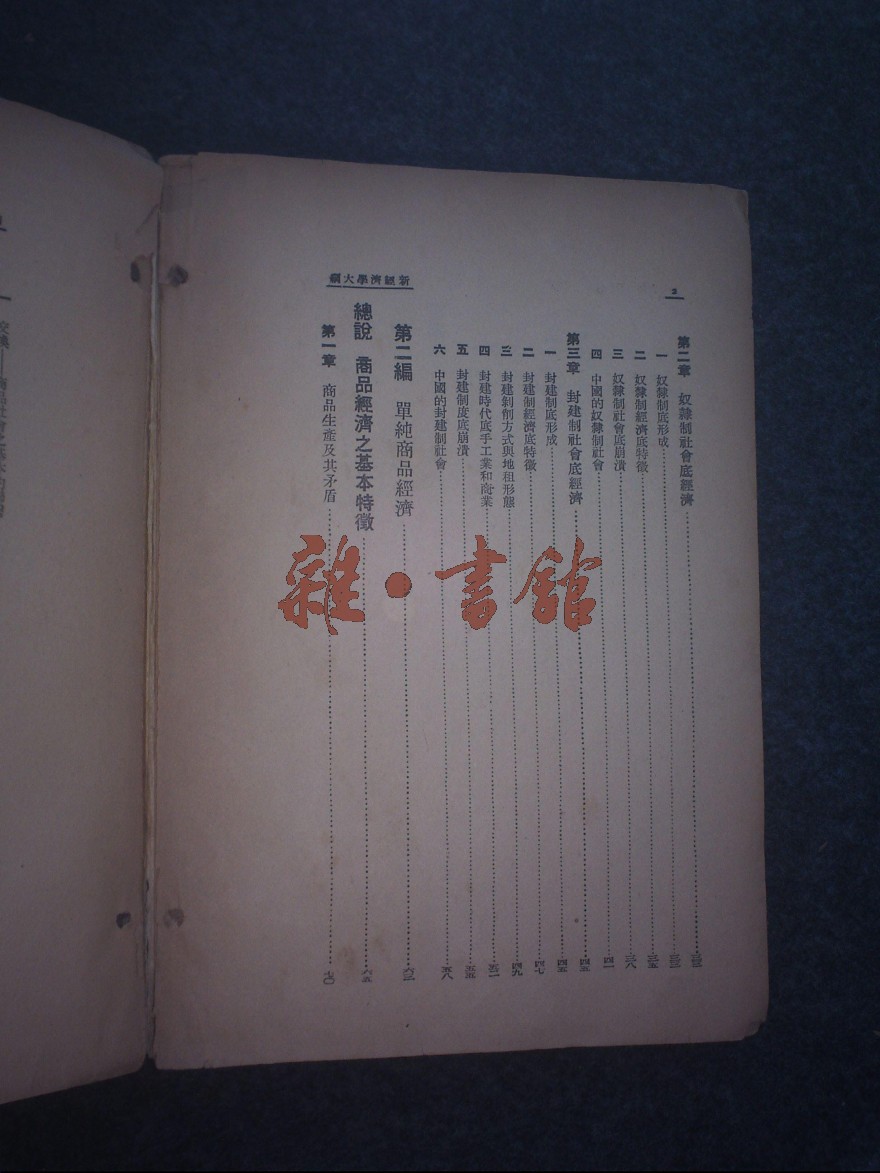 2
新經濟學大綱
第二章 奴隸制社會底經濟……三三
一 奴隸制底形成……三三
二 奴隸制經濟底特徵……三五
三 奴隸制社會底崩潰……三八
四 中國的奴隸制社會……四一
第三章 封建制社會底經濟……四五
一 封建制底形成……四五
二 封建制經濟底特徵……四七
三 封建剝削方式與地租形態……四九
四 封建時代底手工業和商業……五一
五 封建制度底崩潰……五五
六 中國的封建制社會……五八
第二編 單純商品經濟……六三
總說 商品經濟之基本特徵……六五
第一章 商品生產及其矛盾……七〇
雜·書館